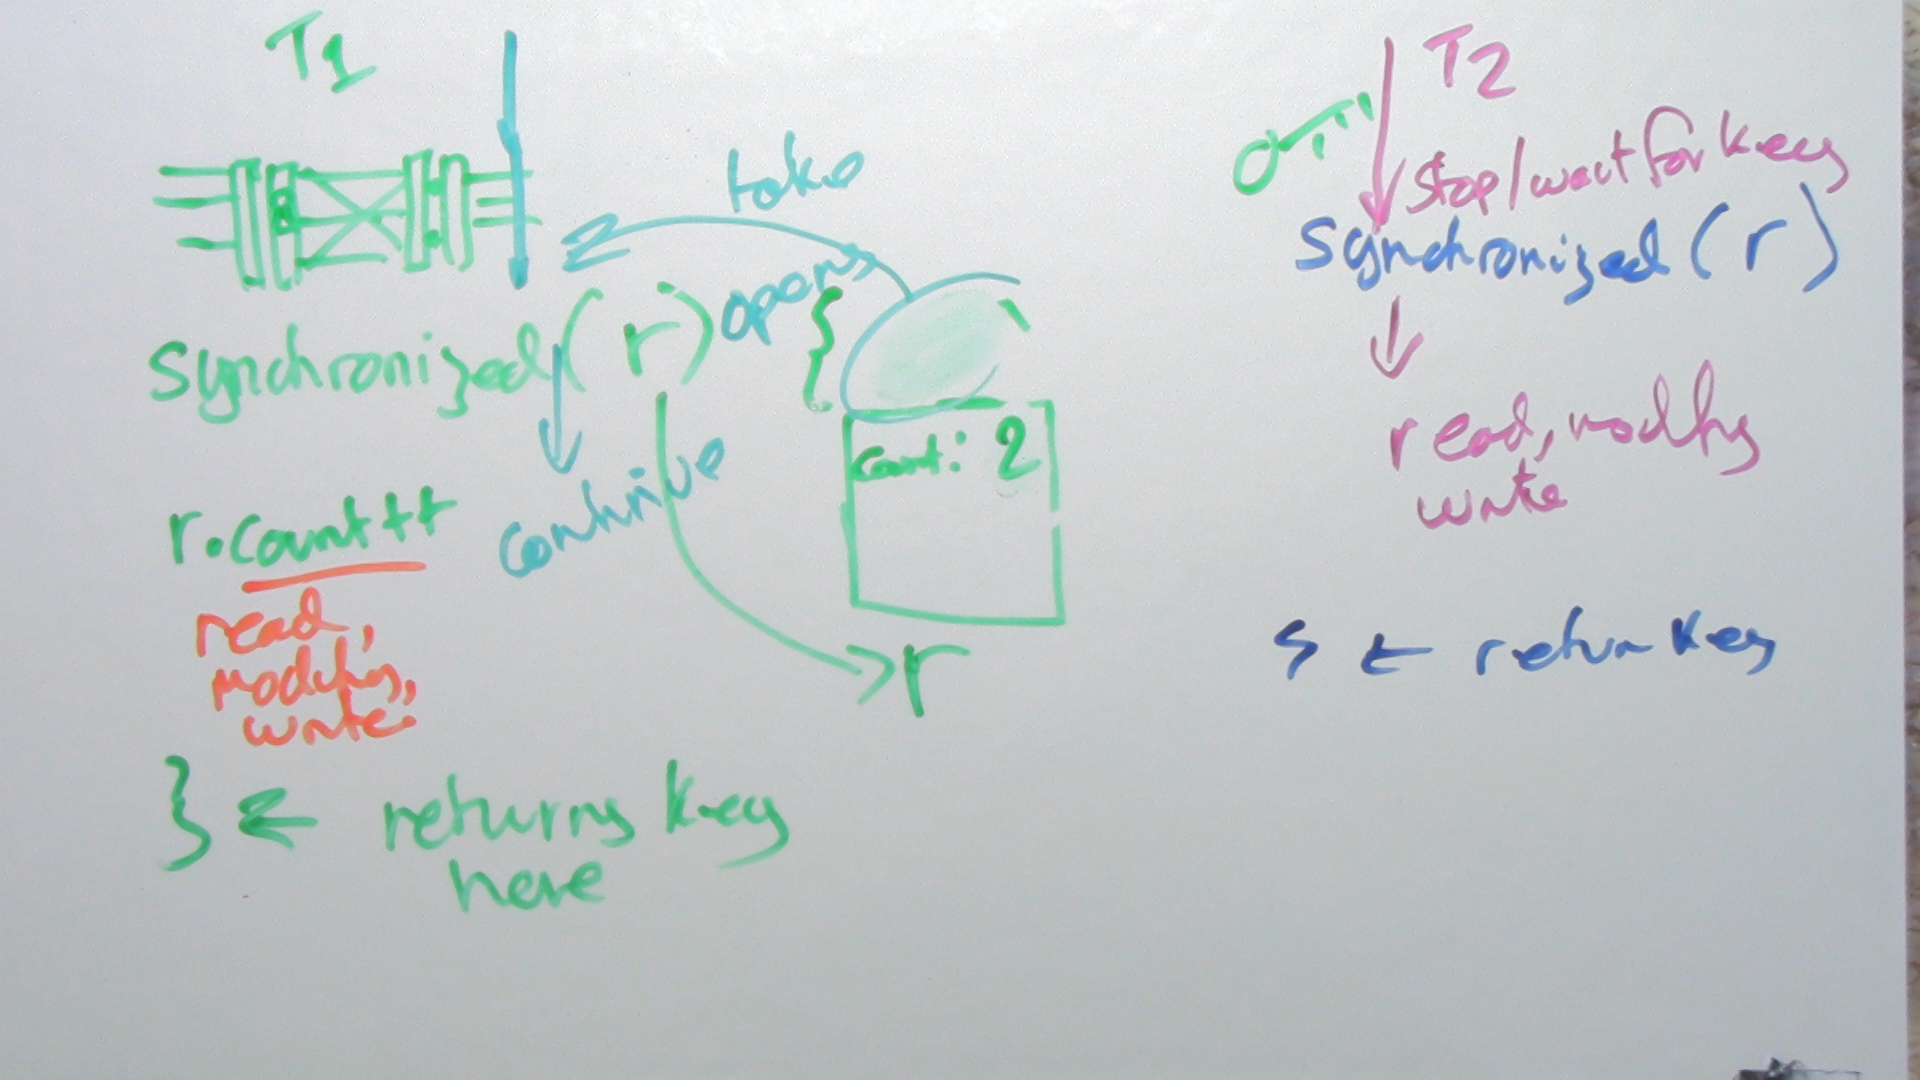 T1
take
synchronized(r)
opens
{
count: 2
continue
r.count++
read,
modify,
write.
r
} ← returns key
here
T2
stop/wait for key
synchronized(r)
read, modify
write
← return key